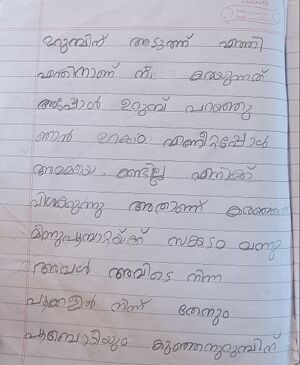 ഉറുമ്പിന് അടുത്ത് എത്തി
എന്തിനാണ് നീ കരയുന്നത്
അപ്പോൾ ഉറുമ്പ് പറഞ്ഞു
ഞാൻ ഉറക്കം എണീറ്റപ്പോൾ
അമ്മയെ കണ്ടില്ല എനിക്ക്
വിശക്കുന്നു അതാണ് കരഞ്ഞത്
മിന്നുപൂമ്പാറ്റയ്ക്ക് സങ്കടം വന്നു
അവൾ അവിടെ നിന്ന
പൂക്കളിൽ നിന്ന് തേനും
പൂമ്പൊടിയും കുഞ്ഞനുറുമ്പിന്